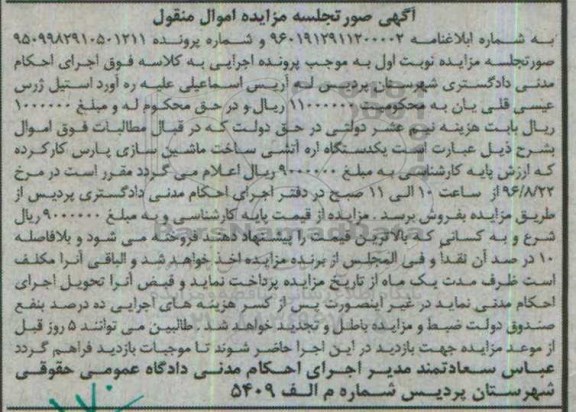 آگهی صورتجلسه مزایده اموال منقول
به شماره ابلاغنامه ۹۶۰۱۹۱۲۹۱۱۲۰۰۰۰۲ و شماره پرونده ۹۵۰۹۹۸۲۹۱۰۵۰۱۲۱۱
صورتجلسه مزایده نوبت اول به موجب پرونده اجرایی به کلاسه فوق اجرای احکام
مدنی دادگستری شهرستان پردیس له آریس اسماعیلی علیه ره آورد استیل ژرس
عیسی قلی یان به محکومیت ۱۱۰۰۰۰۰۰ ریال و در حق محکوم له و مبلغ ۱۰۰۰۰۰۰
ریال بابت هزینه نیم عشر دولتی در حق دولت که در قبال مطالبات فوق اموال
بشرح ذیل عبارت است یکدستگاه اره آتشی ساخت ماشین سازی پارس کارکرده
که ارزش پایه کارشناسی به مبلغ ۹۰۰۰۰۰۰ ریال اعلام می گردد مقرر است در مرخ
۹۶/۸/۲۲ از ساعت ۱۰ الی ۱۱ صبح در دفتر اجرای احکام مدنی دادگستری پردیس از
طریق مزایده بفروش برسد . مزایده از قیمت پایه کارشناسی و به مبلغ ۹۰۰۰۰۰۰ ریال
شرع و به کسانی که بالاترین قیمت را پیشنهاد دهند فروخته می شود و بلافاصله
۱۰ در صد آن نقداً و فی المجلس از برنده مزایده اخذ خواهد شد و الباقی آنرا مکلف
است ظرف مدت یک ماه از تاریخ مزایده پرداخت نماید و قبض آنرا تحویل اجرای
احکام مدنی نماید در غیر اینصورت پس از کسر هزینه های اجرایی ده درصد بنفع
صندوق دولت ضبط و مزایده باطل و تجدید خواهد شد . طالبین می توانند ۵ روز قبل
از موعد مزایده جهت بازدید در این اجرا حاضر شوند تا موجبات بازدید فراهم گردد
عباس سعادتمند مدیر اجرای احکام مدنی دادگاه عمومی حقوقی
شهرستان پردیس شماره م الف ۵۴۰۹
۱۷۰